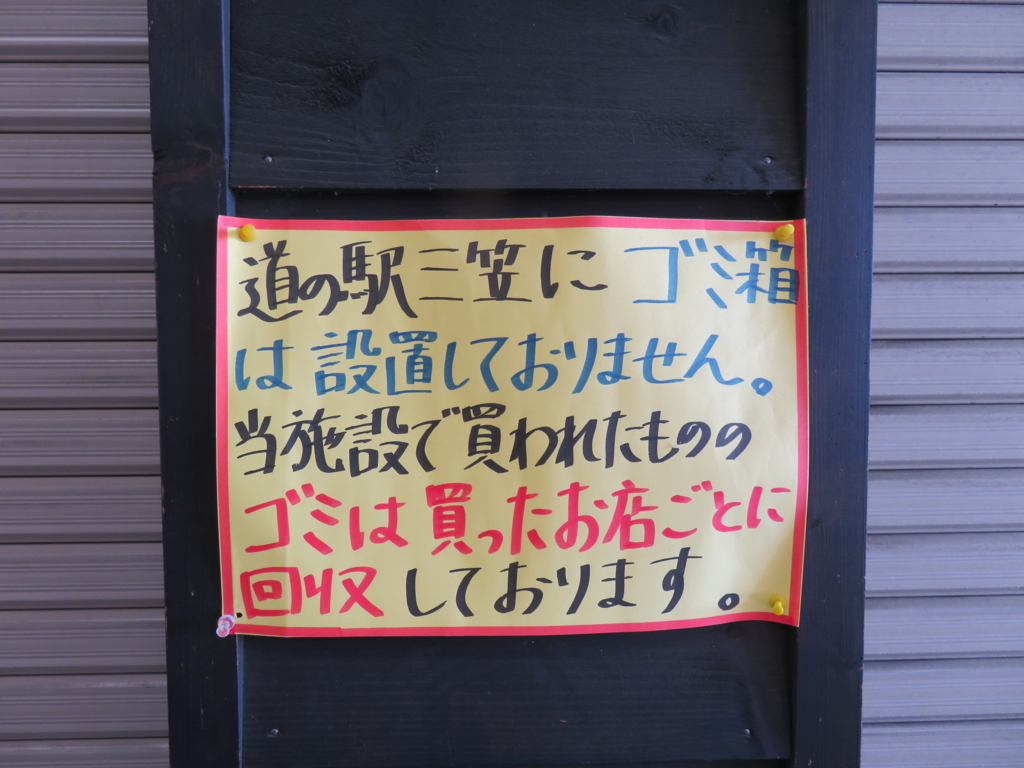 道の駅三笠にゴミ箱
は設置しておりません。
当施設で買われたものの
ゴミは買ったお店ごとに
回収しております。